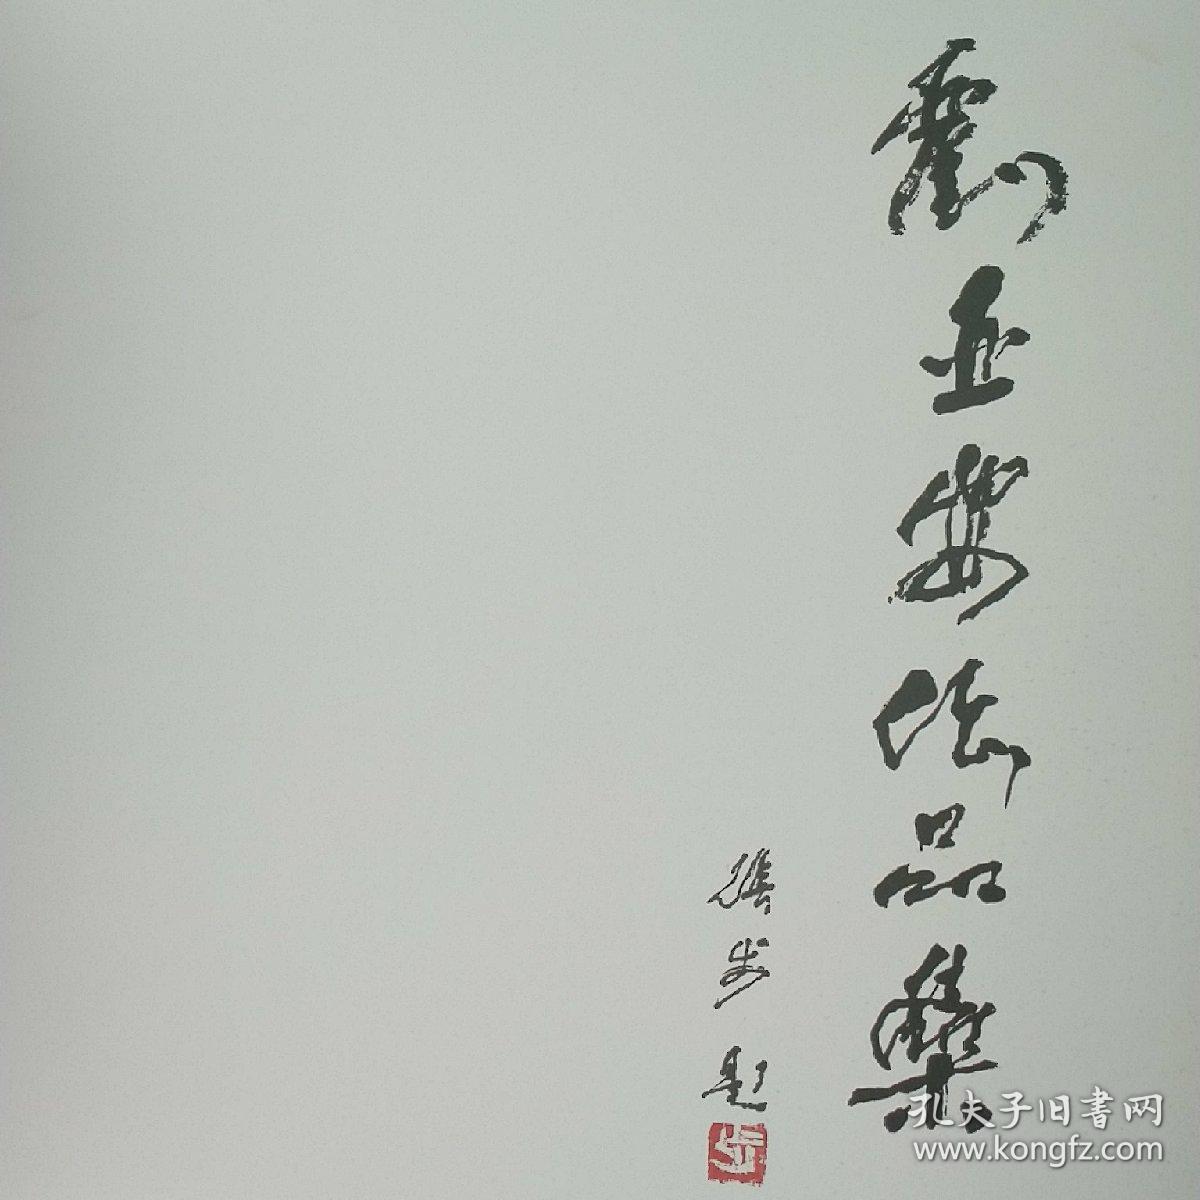 劉亚作品集
張步題
孔夫子旧書网
www.kongfz.com